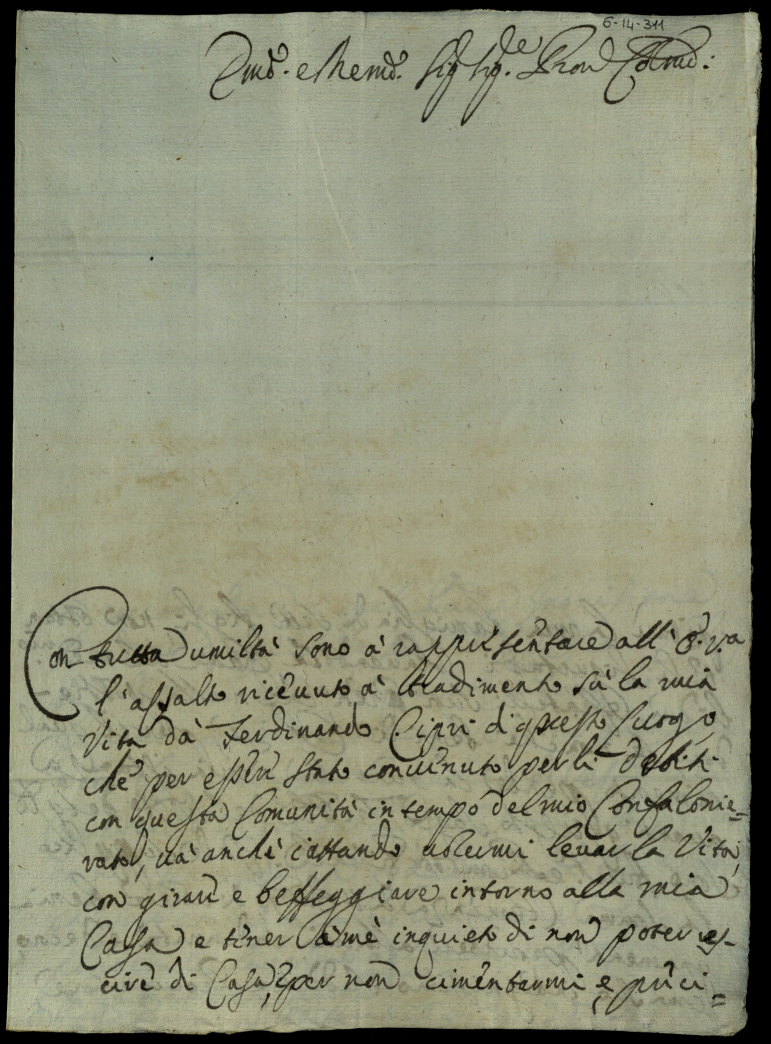 6-14-311
Emõ. e Remõ. Sig Sig.e Pron Colmõ:
Con tutta umiltà sono à rappresentare all' E. V.a
l'assalto riceuuto à tradimento sù la mia
Vita dà Ferdinando Cipri di questo Luogo
che per essere stato conuenuto per li debiti
con questa Comunità in tempo del mio Confalonie=
rato, uà anche iattando uolermi leuar la Vita,
con girare e beffeggiare intorno alla mia
Casa e tener à mè inquieto di non poter es-
cire di Casa, per non cimentarmi, e preci=